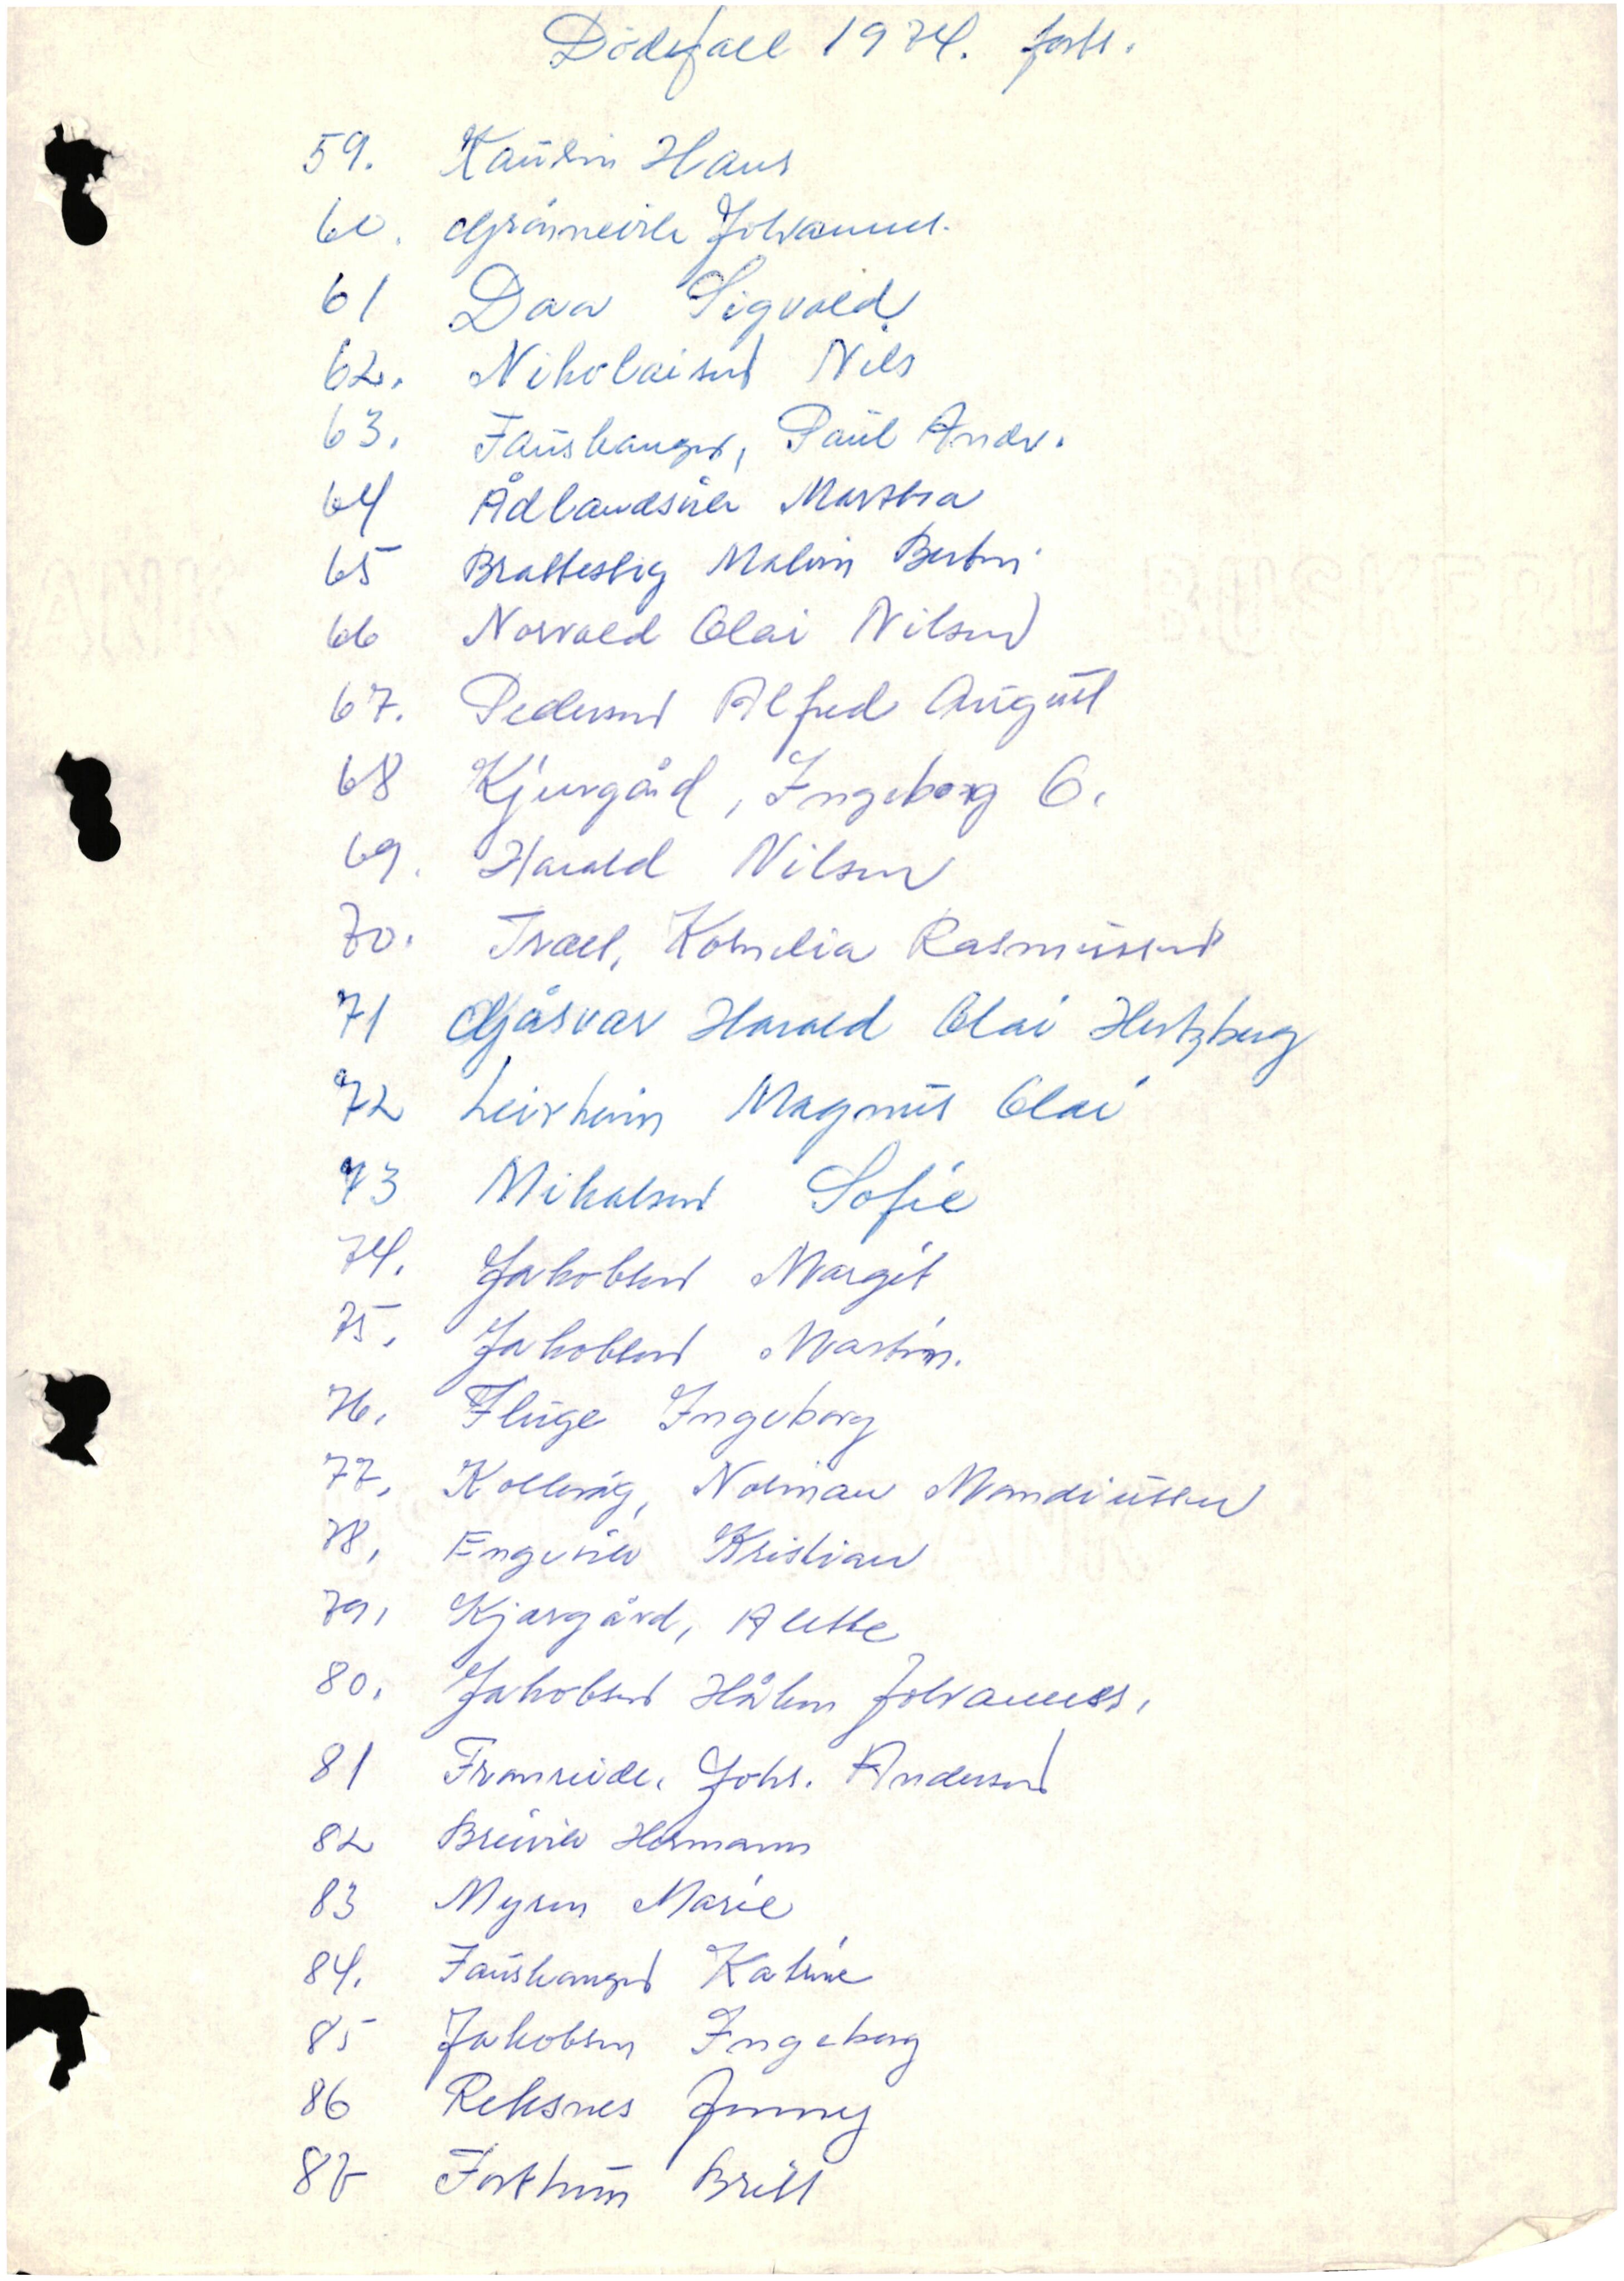 Dödsfall 1974. forts.
59. Kaurin Hans
60. Grönnevik Johannes.
61 Daa Sigvald
62. Nikolaisen Nils
63. Fauskanger, Paul Andr.
64 Ådlandsvik Martha
65 Brattestig Malvin Bertin
66 Norvald Olai Nilsen
67. Pedersen Alfred August
68 Kjærgård, Ingeborg O.
69. Harald Nilsen
70. Træl, Kornelia Rasmussen
71 Gjåsvær Harald Olai Hertzberg
72 Leirheim Magnus Olai
73 Mikalsen Sofie
74. Jakobsen Margit
75. Jakobsen Martin.
76. Fluge Ingeborg
77. Kollevåg, Norman Mondiussen
78. Engevik Kristian
79. Kjærgård, Alette
80. Jakobsen Håkon Johannes.
81 Framreide, Johs. Andersen
82 Breivik Hermann
83 Myren Marie
84. Fauskanger Katrine
85 Jakobsen Ingeborg
86 Reksnes Jenny
87 Forthun Britt